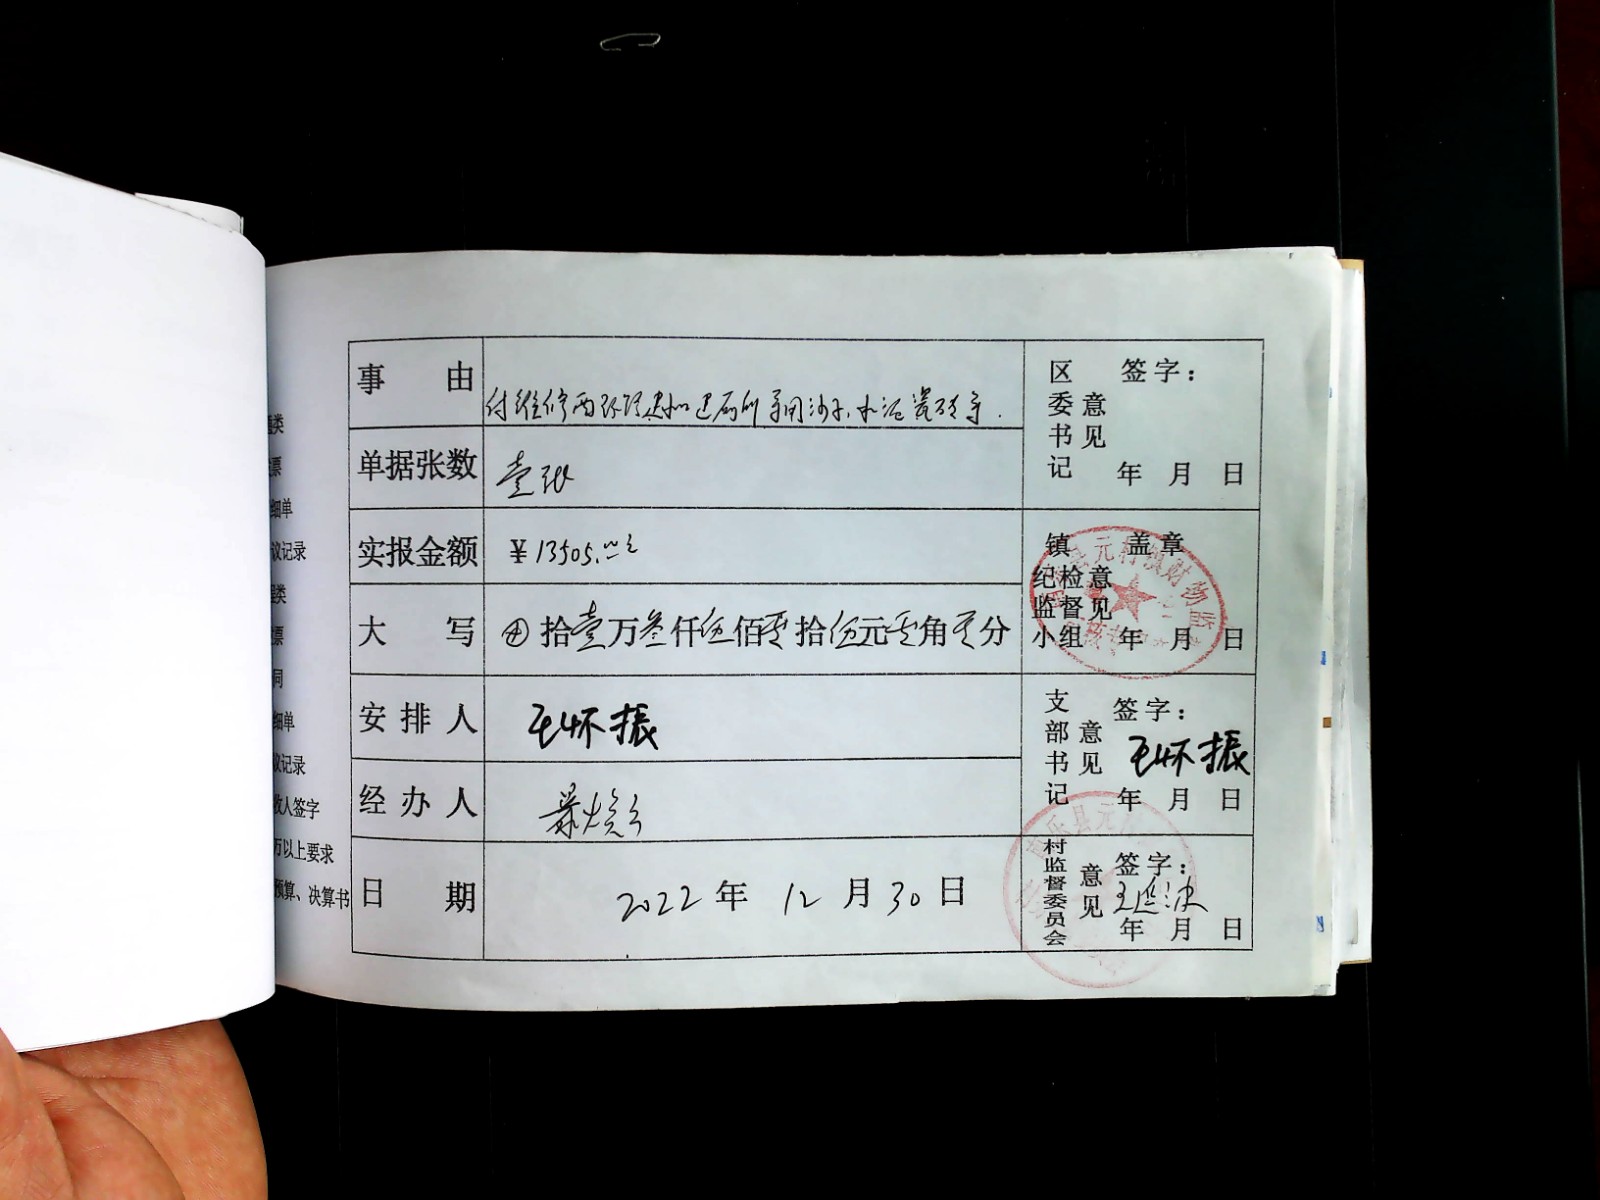 类
票
细单
议记录
类
票
同
细单
议记录
收人签字
万以上要求
预算、决算书
事 由
付维修两
水泥瓷砖等.
单据张数 壹张
实报金额 ¥13505.00元
大 写 ⊕拾壹万叁仟伍佰零拾伍元零角零分
安排人 王怀振
经办人
日 期 2022年 12月30日
区委书记意见 签字：
年 月 日
镇纪检监督小组意见 盖章
年 月 日
支部书记意见 签字：
王怀振
年 月 日
村监督委员会意见 签字：
王延波
年 月 日
县元村镇财务监
乐县元